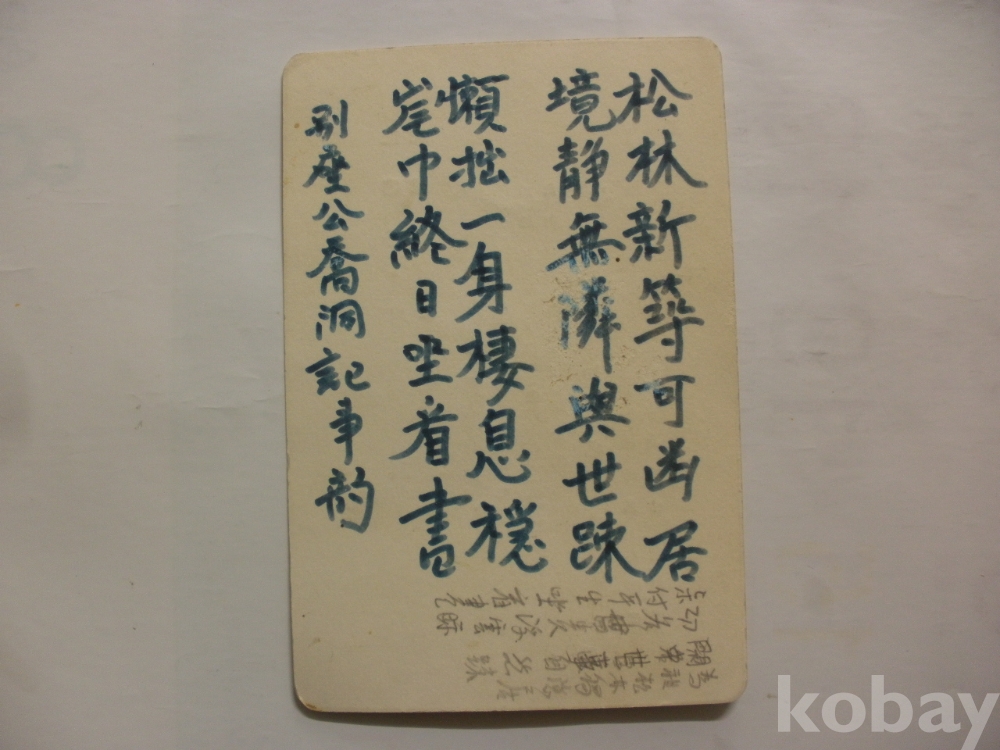 松林新築可幽居
境靜無隣與世踈
懶拙一身棲息穩
岸巾終日坐看書
別座公喬洞記事韵
kobay